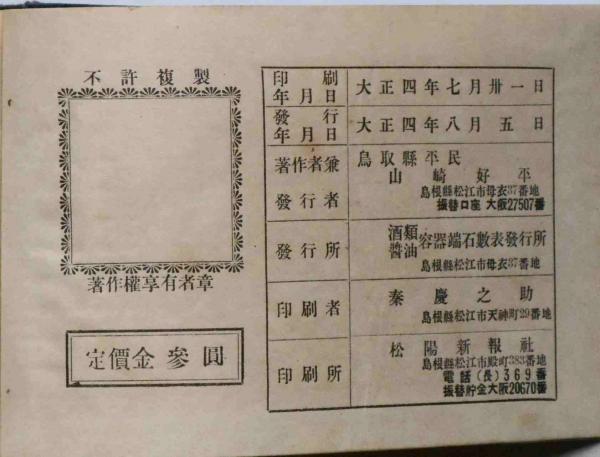 不許複製
著作權享有者章
定價金參圓
印刷
年月日
大正四年七月卅一日
發行
年月日
大正四年八月五日
著作者兼
發行者
鳥取縣平民
山崎好平
島根縣松江市母衣37番地
振替口座 大阪27507番
發行所
酒類
醬油
容器端石數表發行所
島根縣松江市母衣37番地
印刷者
秦慶之助
島根縣松江市天神町29番地
印刷所
松陽新報社
島根縣松江市殿町383番地
電話(長)369番
振替貯金大阪20670番